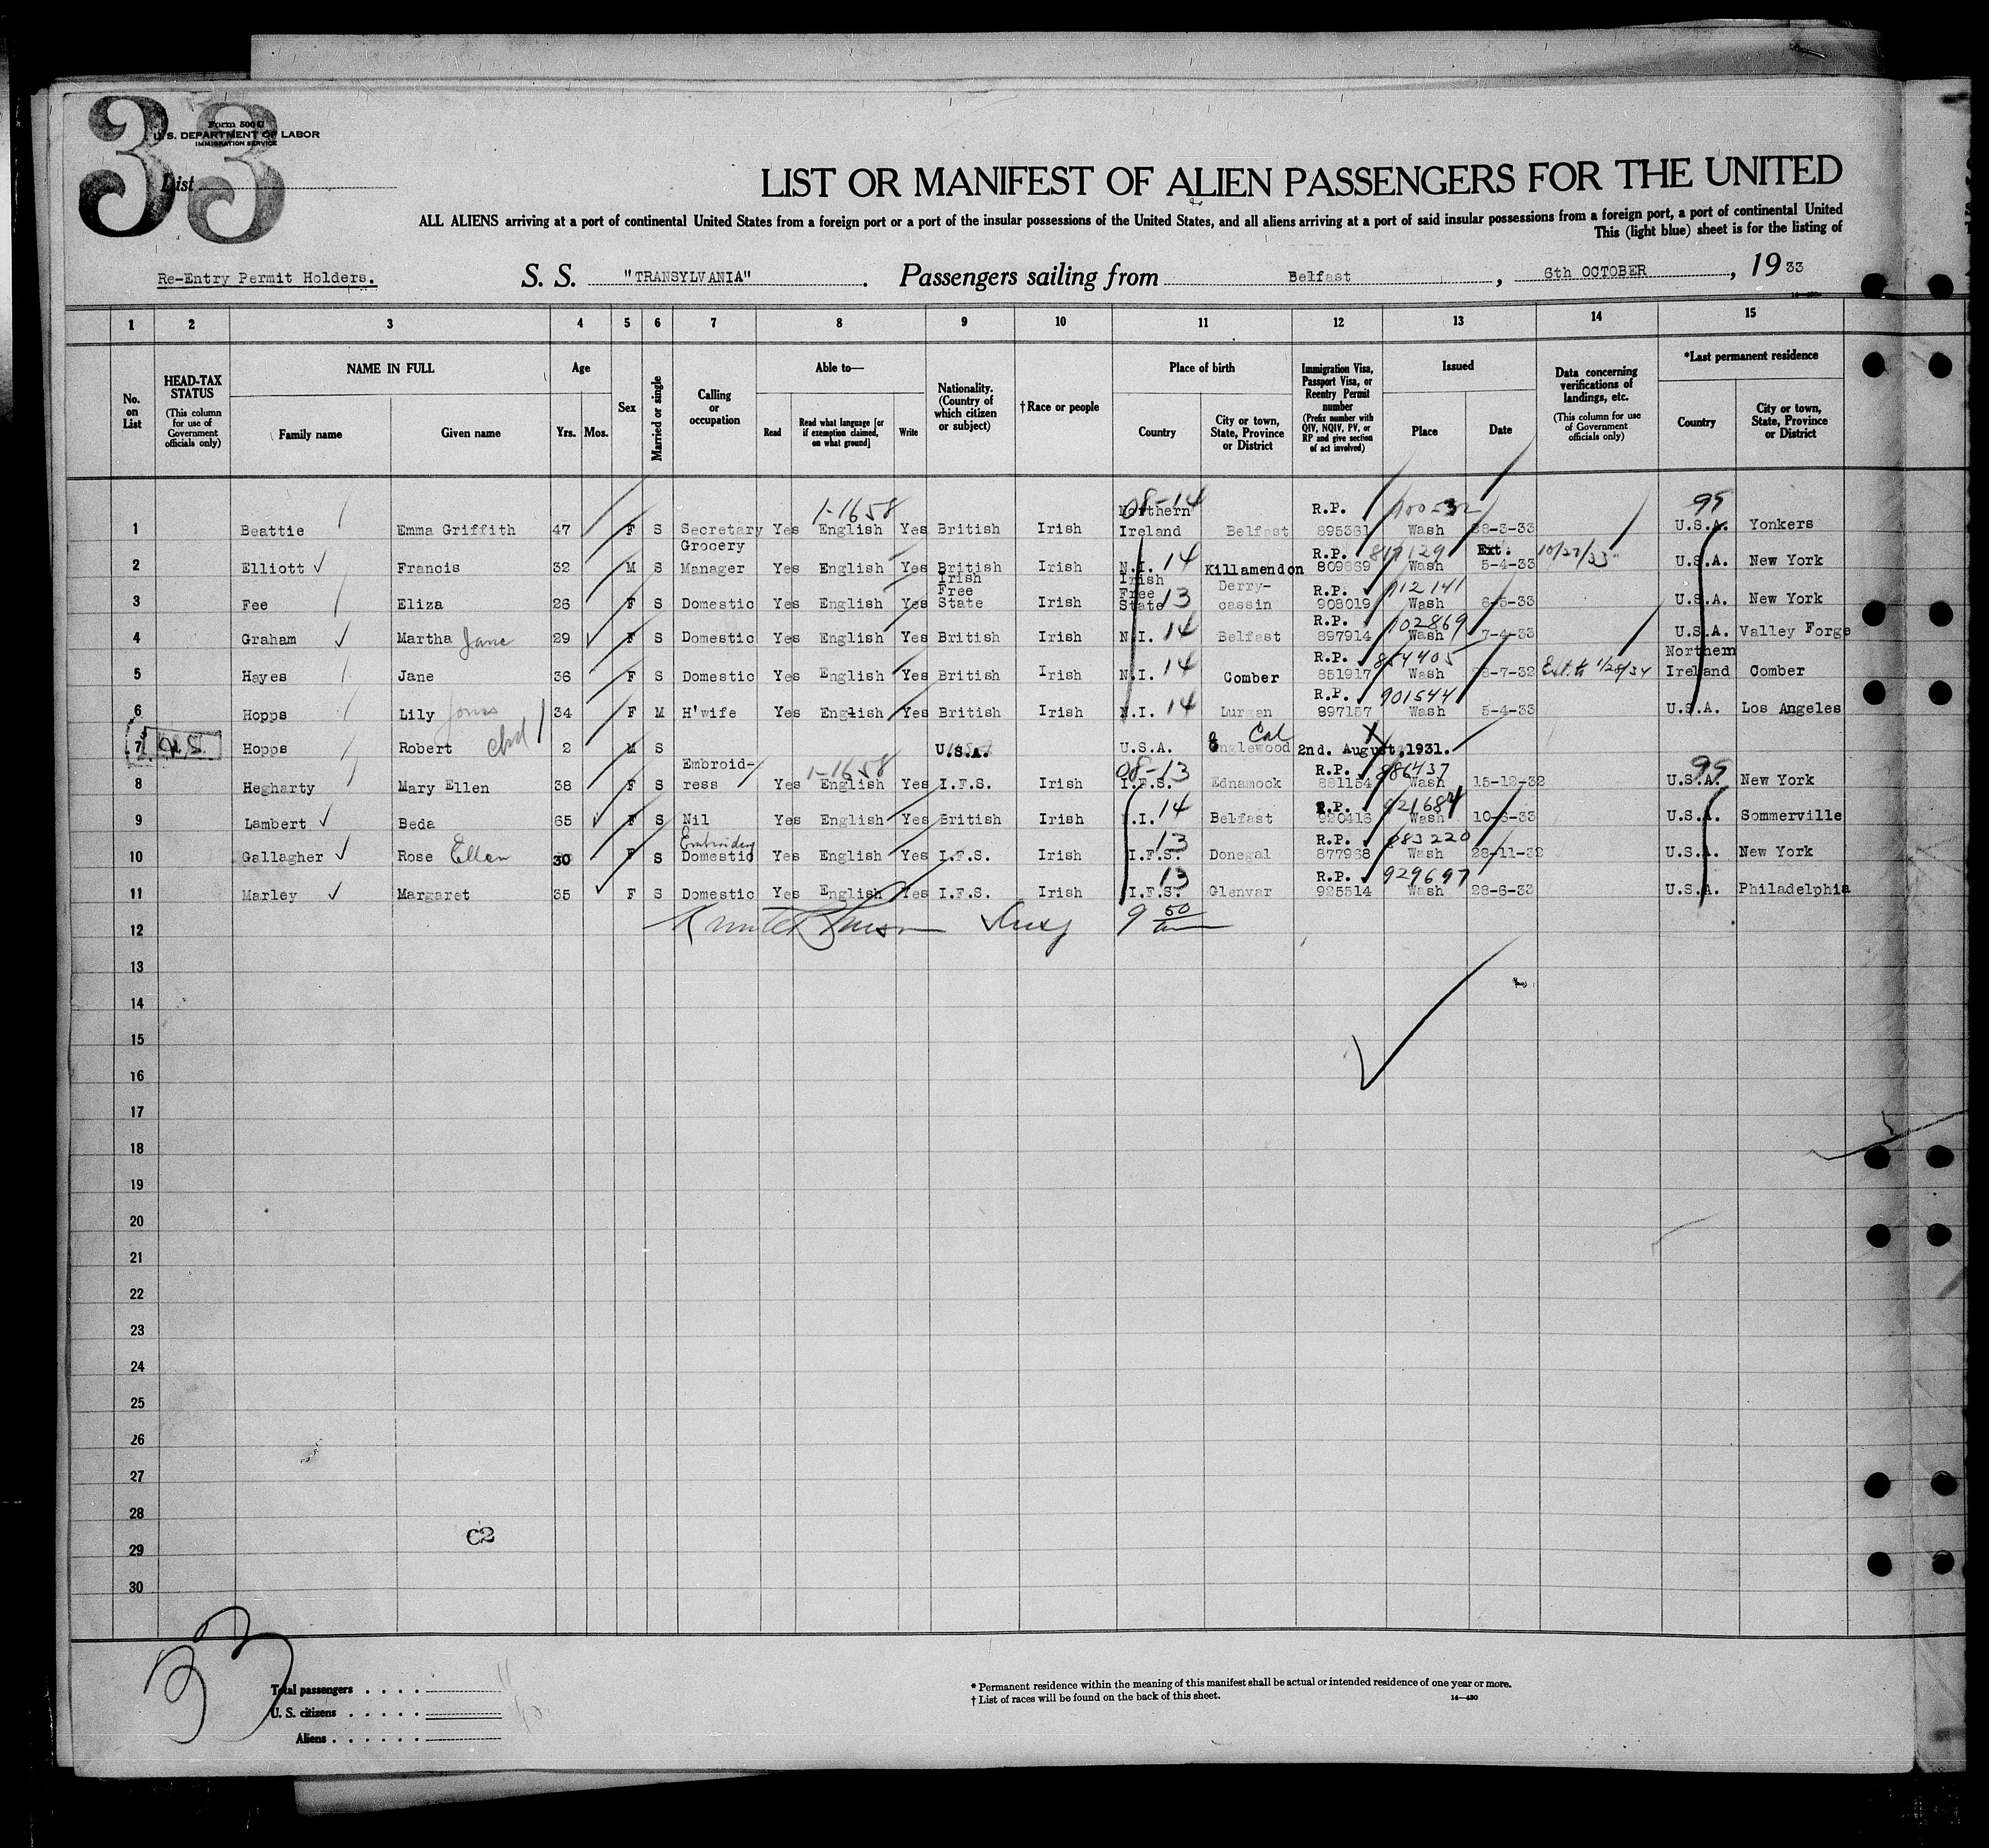 33
Form 500 U
U. S. DEPARTMENT OF LABOR
IMMIGRATION SERVICE
List
LIST OR MANIFEST OF ALIEN PASSENGERS FOR THE UNITED
ALL ALIENS arriving at a port of continental United States from a foreign port or a port of the insular possessions of the United States, and all aliens arriving at a port of said insular possessions from a foreign port, a port of continental United
This (light blue) sheet is for the listing of
Re-Entry Permit Holders. S. S. "TRANSYLVANIA". Passengers sailing from Belfast, 6th OCTOBER, 19 33
1 2 3 4 5 6 7 8 9 10 11 12 13 14 15
No. on List
HEAD-TAX STATUS (This column for use of Government officials only)
NAME IN FULL Family name Given name
Age Yrs. Mos.
Sex
Married or single
Calling or occupation
Able to— Read Read what language [or if exemption claimed, on what ground] Write
Nationality. (Country of which citizen or subject)
†Race or people
Place of birth Country City or town, State, Province or District
Immigration Visa, Passport Visa, or Reentry Permit number (Prefix number with QIV, NQIV, PV, or RP and give section of act involved)
Issued Place Date
Data concerning verifications of landings, etc. (This column for use of Government officials only)
*Last permanent residence Country City or town, State, Province or District
1 Beattie Emma Griffith 47 F S Secretary Yes English 1-1658 Yes British Irish Northern Ireland 08-14 Belfast R.P. 895361 Wash 28-3-33 99 U.S.A. Yonkers
2 Elliott Francis 32 M S Grocery Manager Yes English Yes British Irish N.I. 14 Killamendon R.P. 809869 Wash Ext. 5-4-33 10/27/33 U.S.A. New York
3 Fee Eliza 26 F S Domestic Yes English Yes Irish Free State Irish Irish Free State 13 Derry-cassin R.P. 908019 912141 Wash 6-5-33 U.S.A. New York
4 Graham Martha Jane 29 F S Domestic Yes English Yes British Irish N.I. 14 Belfast R.P. 897914 902869 Wash 7-4-33 U.S.A. Valley Forge
5 Hayes Jane 36 F S Domestic Yes English Yes British Irish N.I. 14 Comber R.P. 851917 854405 Wash 28-7-32 Ext. to 1/28/34 Northern Ireland Comber
6 Hopps Lily Jones 34 F M H'wife Yes English Yes British Irish N.I. 14 Lurgan R.P. 897157 901544 Wash 5-4-33 U.S.A. Los Angeles
7 U.S. Hopps Robert chd 2 M S U.S.A. U.S.A. Englewood Cal 2nd. August, 1931.
8 Hegharty Mary Ellen 38 F S Embroid-ress Yes English 1-1658 Yes I.F.S. Irish I.F.S. 08-13 Ednamock R.P. 881154 886437 Wash 15-12-32 99 U.S.A. New York
9 Lambert Beda 65 F S Nil Yes English Yes British Irish N.I. 14 Belfast R.P. 920416 921684 Wash 10-6-33 U.S.A. Sommerville
10 Gallagher Rose Ellen 30 F S Domestic Yes English Yes I.F.S. Irish I.F.S. 13 Donegal R.P. 877968 883220 Wash 28-11-32 U.S.A. New York
11 Marley Margaret 35 F S Domestic Yes English Yes I.F.S. Irish I.F.S. 13 Glenvar R.P. 925514 929697 Wash 28-6-33 U.S.A. Philadelphia
12 9 50
13
14
15
16
17
18
19
20
21
22
23
24
25
26
27
28
C2
29
30
33
Total passengers 11
U. S. citizens
Aliens
* Permanent residence within the meaning of this manifest shall be actual or intended residence of one year or more.
† List of races will be found on the back of this sheet. 14—430